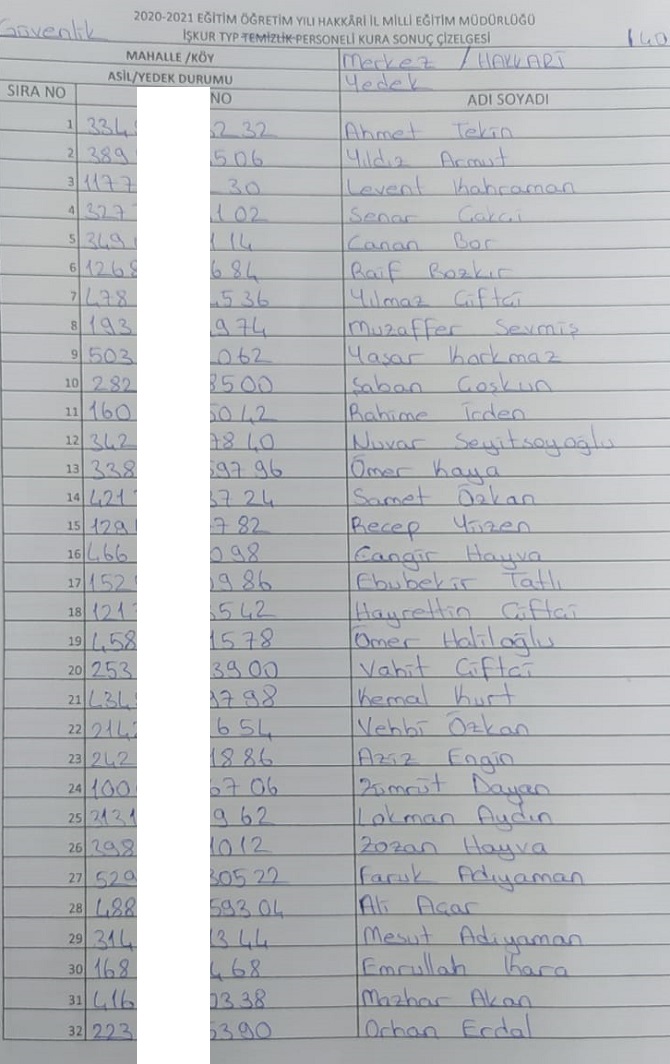 2020-2021 EĞİTİM ÖĞRETİM YILI HAKKÂRİ İL MİLLİ EĞİTİM MÜDÜRLÜĞÜ
Güvenlik İŞKUR TYP TEMİZLİK PERSONELİ KURA SONUÇ ÇİZELGESİ
MAHALLE /KÖY Merkez / HAKKARİ
ASİL/YEDEK DURUMU Yedek
SIRA NO NO ADI SOYADI
1 334 232 Ahmet Tekin
2 389 506 Yıldız Armut
3 1177 30 Levent Kahraman
4 327 102 Senar
5 349 114 Canan Bor
6 1268 684 Raif Bozkır
7 478 536 Yılmaz Çiftçi
8 193 974 Muzaffer Sevmiş
9 503 062 Yaşar Korkmaz
10 282 3500 Şaban Coşkun
11 160 5042 Rahime İrden
12 342 7840 Nuvar Seyitsoyoğlu
13 338 59796 Ömer Kaya
14 421 3724 Samet Özkan
15 129 782 Recep Yüzen
16 466 098 Cangir Hayva
17 152 986 Ebubekir Tatlı
18 121 542 Hayrettin Çiftçi
19 458 1578 Ömer Haliloğlu
20 253 3900 Vahit Çiftçi
21 434 798 Kemal Kurt
22 214 654 Vehbi Özkan
23 242 1886 Aziz Engin
24 100 706 Zümrüt Dayan
25 3131 962 Lokman Aydın
26 398 1012 Zozan Hayva
27 529 30522 Faruk Adıyaman
28 488 59304 Ali Acar
29 314 1344 Mesut Adıyaman
30 168 468 Emrullah Kara
31 416 0338 Mazhar Akan
32 223 5390 Orhan Erdal